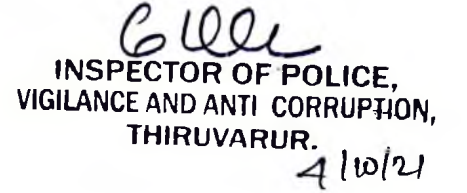 INSPECTOR OF POLICE,
VIGILANCE AND ANTI CORRUPTION,
THIRUVARUR.
4/10/21